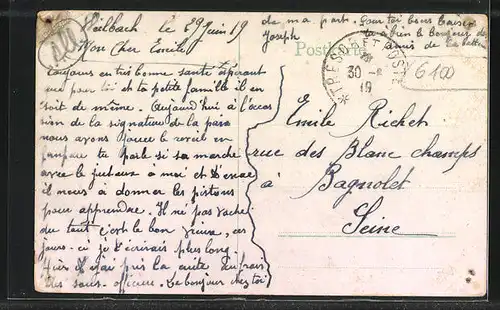 Heilbach le 29 Juin 19
Mon Cher Emile
toujours en très bonne santé espérant
que pour toi et ta petite famille il en
soit de même. Aujourd'hui à l'occa
sion de la signature de la paix
nous avons jouer le reveil en
fanfare te parle si sa marche
avec le
il nous à donner les pistons
pour apprendre. Il ne pas vache
du tout c'est le bon
jours-ci je t'écrirais plus long
les sous-officier. Le bonjour chez toi
de ma part. Pour toi bons baisers
Joseph
tu a bien le bonjour de
amis de la
Postkarte
TRESOR ET POSTES
30-6
19
6100
Emile Richet
rue des Blanc champs
à Bagnolet
Seine